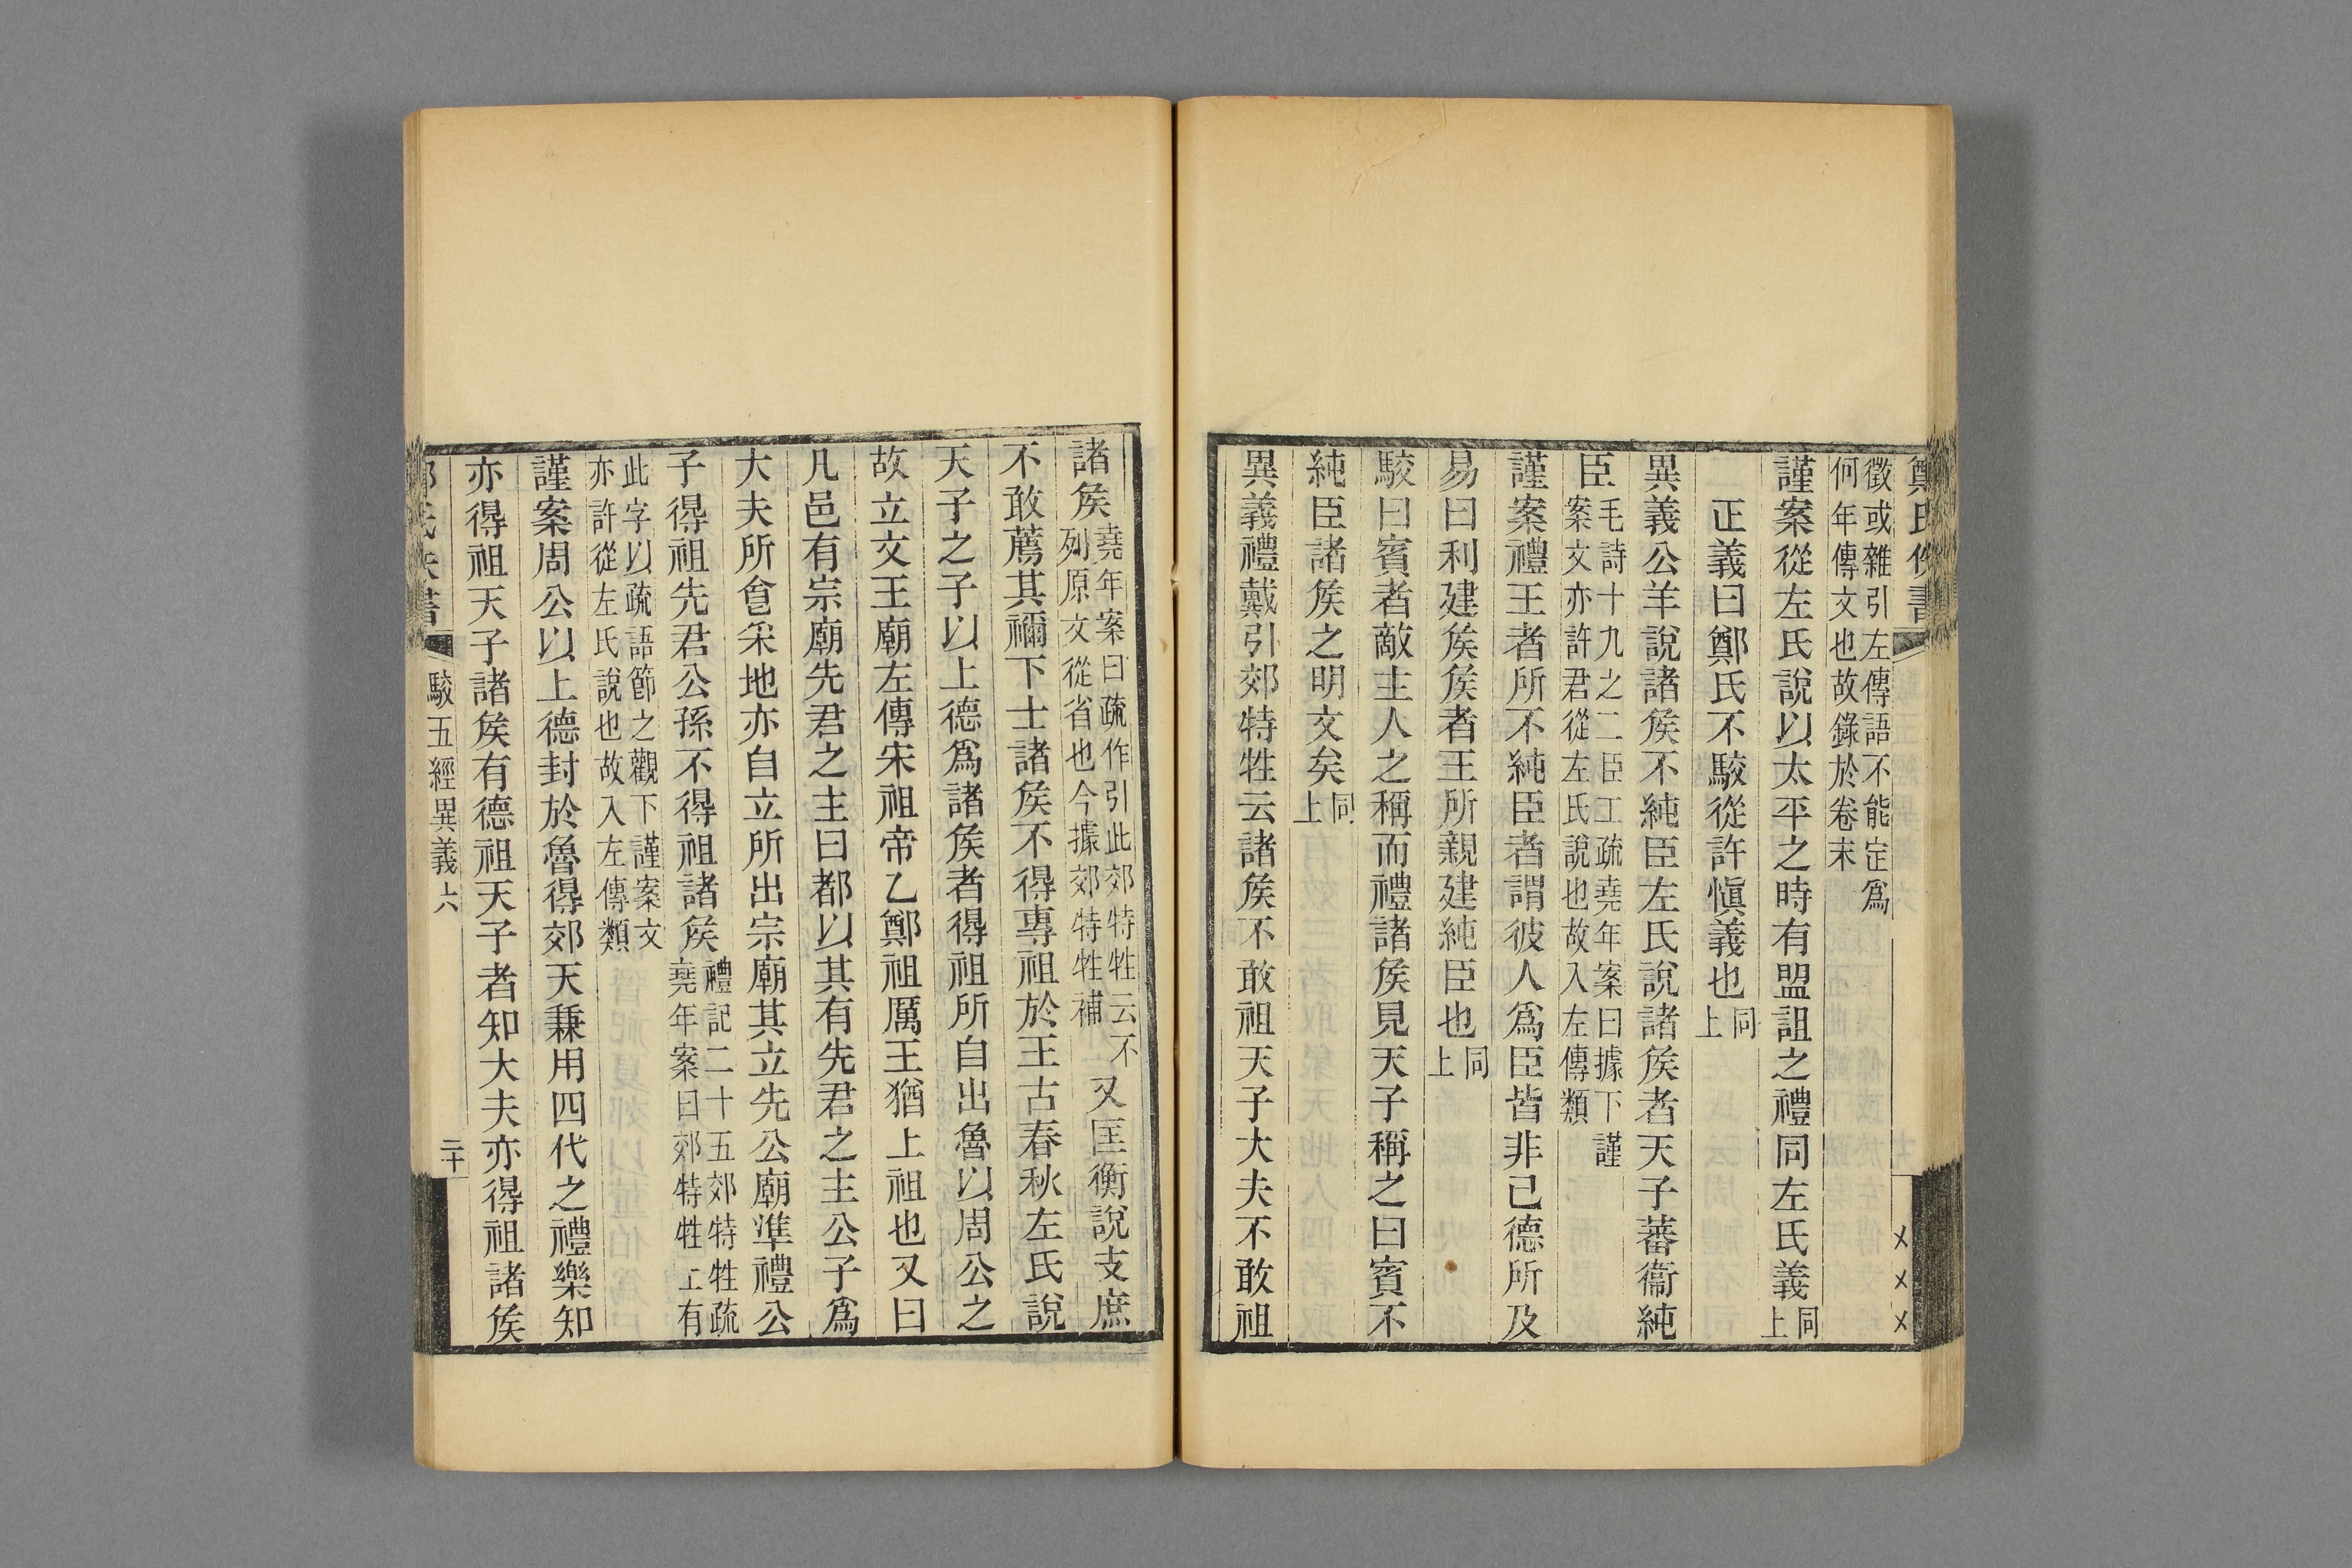 鄭氏佚書
徵或雜引左傳語不能定爲
何年傳文也故錄於卷末
謹案從左氏說以太平之時有盟詛之禮同左氏義同上
正義曰鄭氏不駮從許愼義也同上
異義公羊說諸矦不純臣左氏說諸矦者天子蕃衞純
臣毛詩十九之二臣工疏堯年案曰據下謹
案文亦許君從左氏說也故入左傳類
謹案禮王者所不純臣者謂彼人爲臣皆非己德所及
易曰利建矦矦者王所親建純臣也同上
駮曰賓者敵主人之稱而禮諸矦見天子稱之曰賓不
純臣諸矦之明文矣同上
異義禮戴引郊特牲云諸矦不敢祖天子大夫不敢祖
諸矦堯年案曰疏作引此郊特牲云不
列原文從省也今據郊特牲補又匡衡說支庶
不敢薦其禰下士諸矦不得專祖於王古春秋左氏說
天子之子以上德爲諸矦者得祖所自出魯以周公之
故立文王廟左傳宋祖帝乙鄭祖厲王猶上祖也又曰
凡邑有宗廟先君之主曰都以其有先君之主公子爲
大夫所食采地亦自立所出宗廟其立先公廟準禮公
子得祖先君公孫不得祖諸矦禮記二十五郊特牲疏
堯年案曰郊特牲上有
此字以疏語節之觀下謹案文
亦許從左氏說也故入左傳類
謹案周公以上德封於魯得郊天兼用四代之禮樂知
亦得祖天子諸矦有德祖天子者知大夫亦得祖諸矦
鄭氏佚書 駮五經異義六 二十